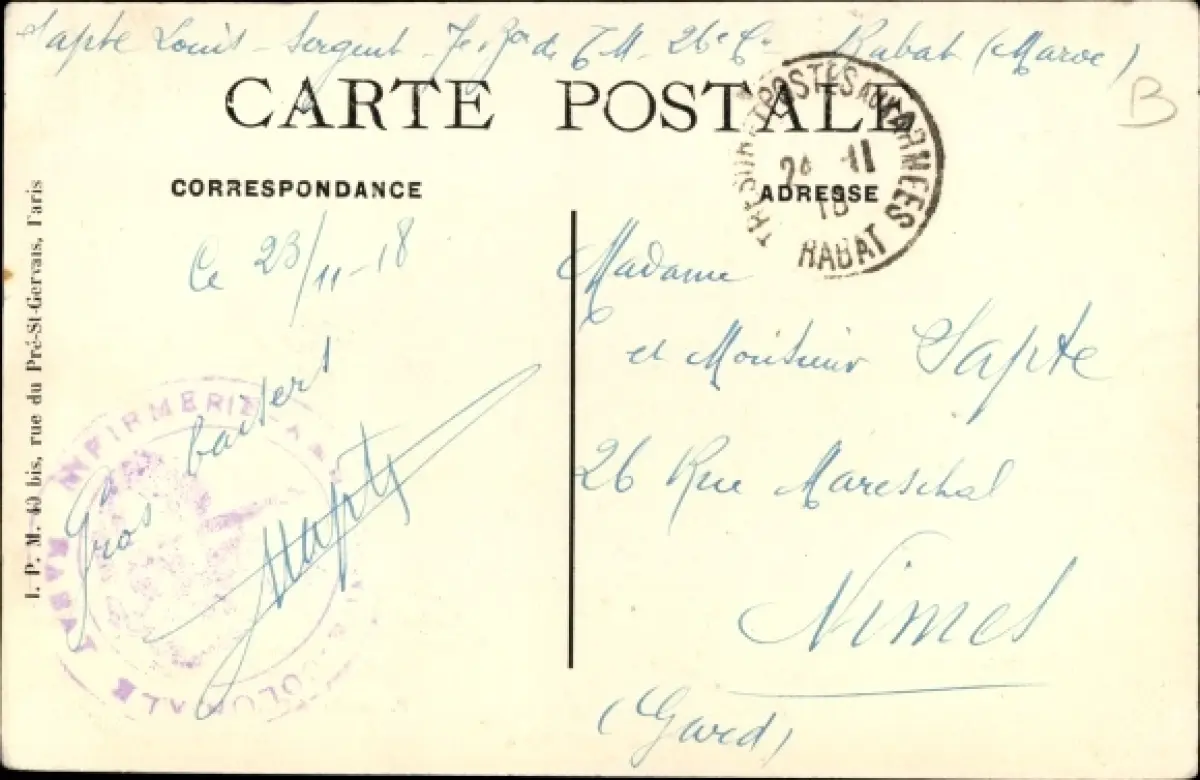 Sapte Louis - Sergent - 7e de T M - 26e Cie Rabat (Maroc)
B
CARTE POSTALE
TRESOR ET POSTES AUX ARMEES
24 11
18
RABAT
CORRESPONDANCE
ADRESSE
Ce 23/11-18
Gros baisers
Sapte
INFIRMERIE
COLONIALE
RABAT
Madame
et Monsieur Sapte
26 Rue Mareschal
Nimes
(Gard)
I. P. M. 40 bis, rue du Pré-St-Gervais, Paris